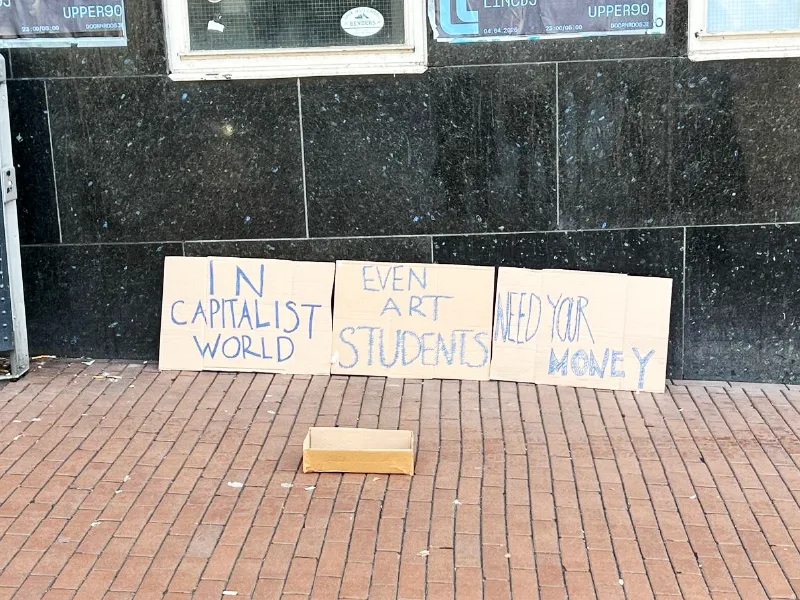 UPPER90
23:00/05:00
DOORNROOSJE
BENDERS
LINCDJ
UPPER90
04.04.2025
23:00/05:00
DOORNROOSJE
IN
CAPITALIST
WORLD
EVEN
ART
STUDENTS
NEED YOUR
MONEY